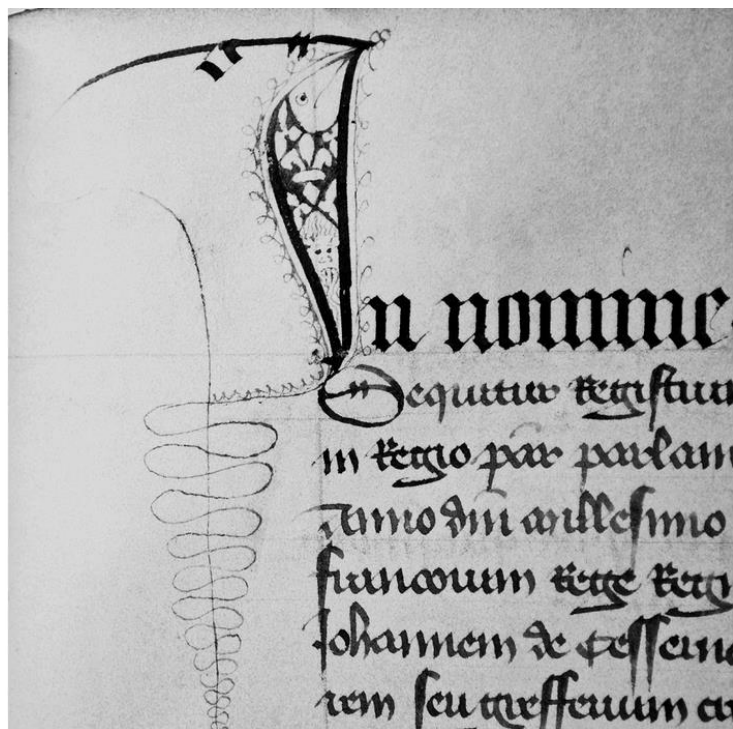 In nomine
Sequitur Registrum
in Regio par parlam
Anno dni millesimo
francorum Rege Regn
Johannem de Cessem
rem seu grefferium